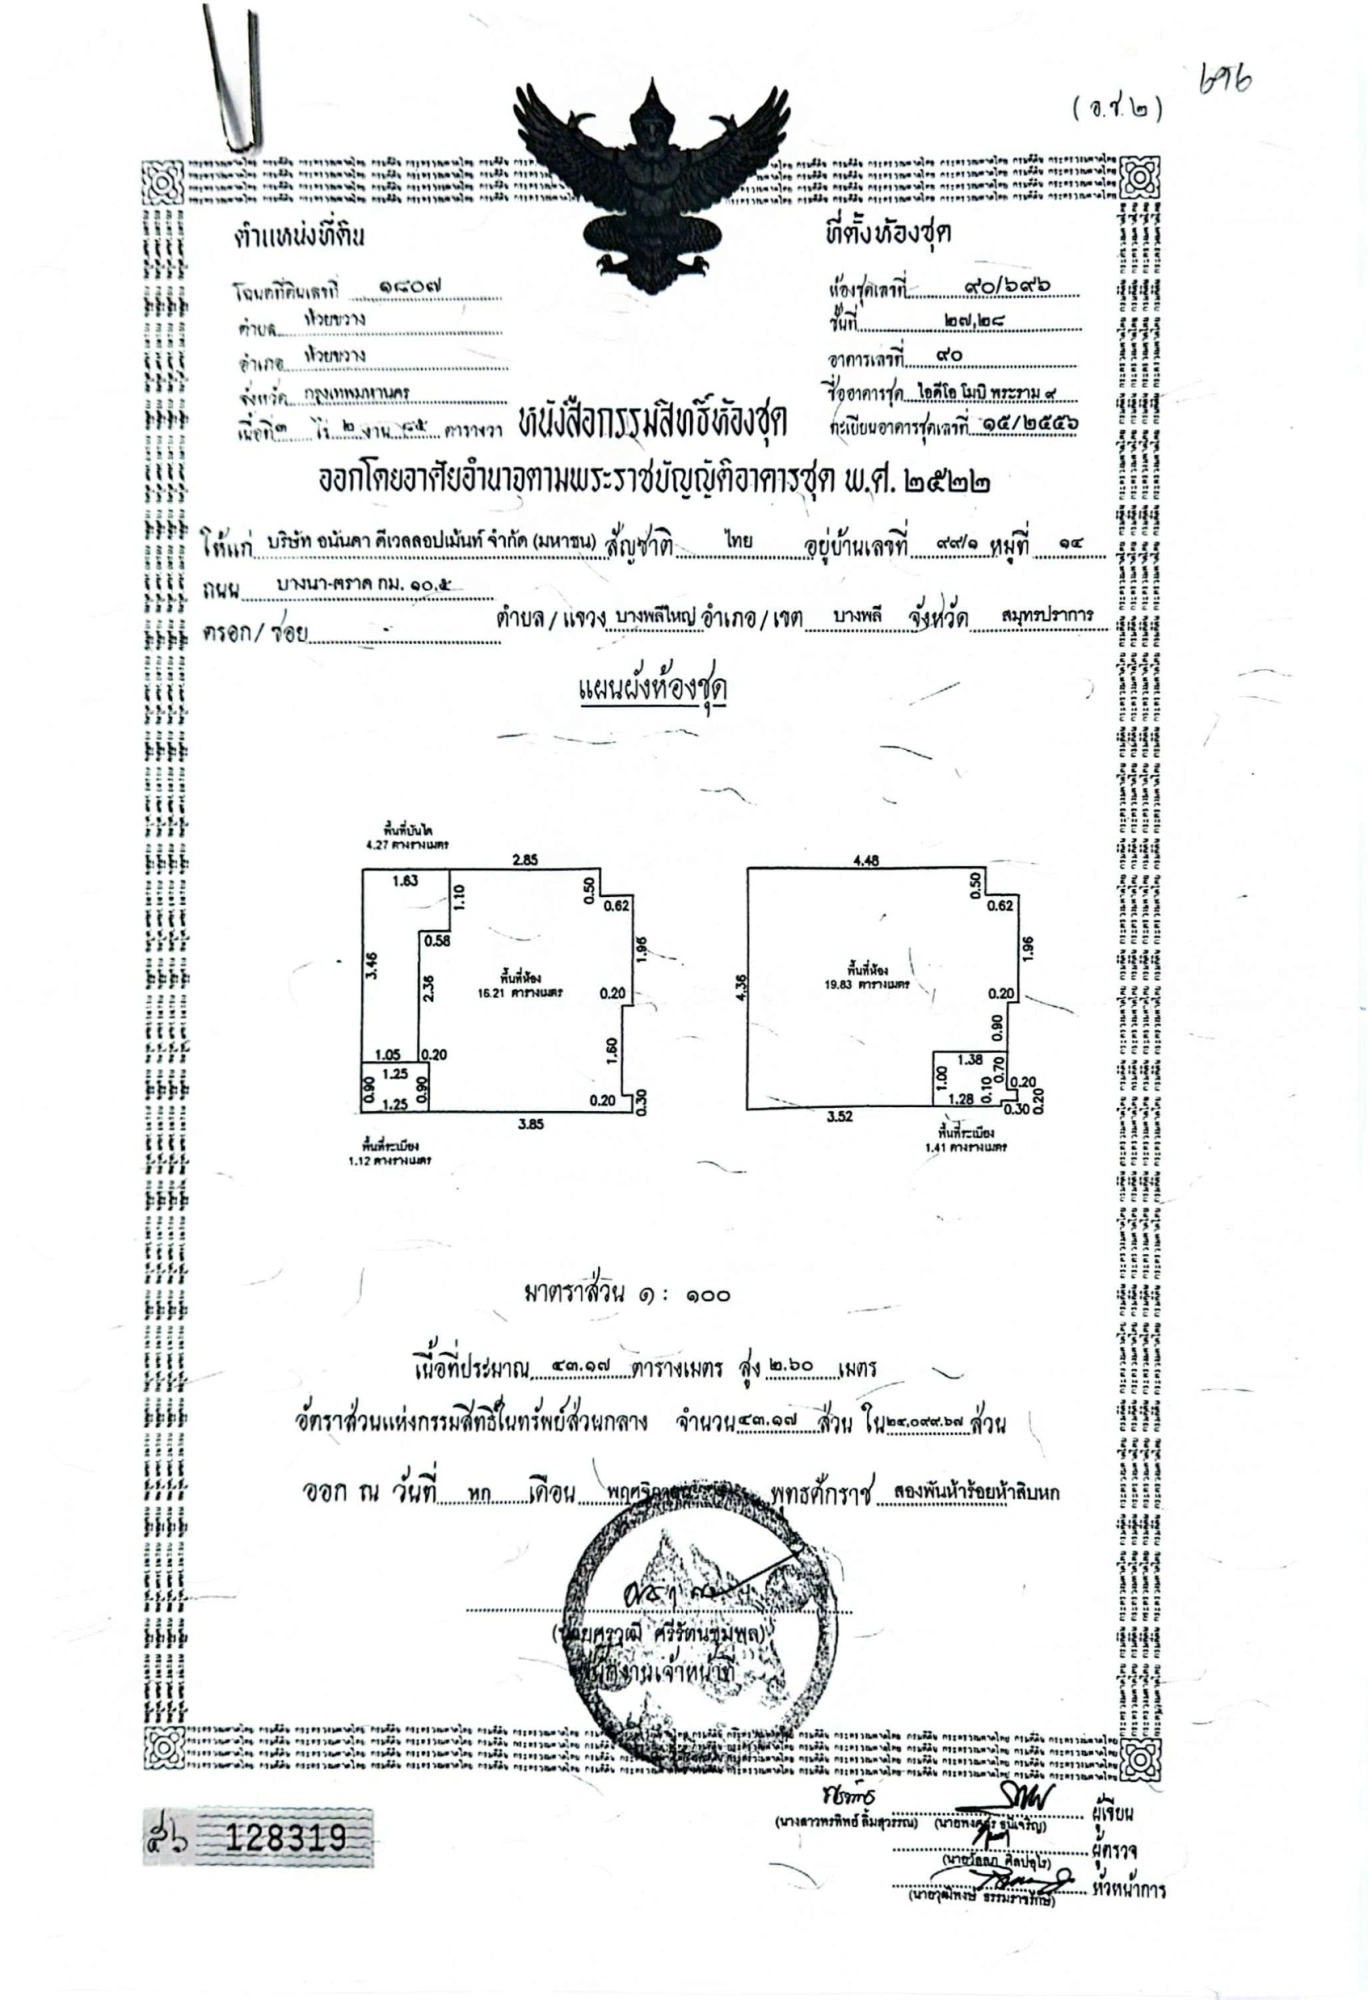 ๖๙๖
(อ.ช.๒)
ตำแหน่งที่ดิน
โฉนดที่ดินเลขที่ ๑๘๐๗
ตำบล ห้วยขวาง
อำเภอ ห้วยขวาง
จังหวัด กรุงเทพมหานคร
เนื้อที่ ๓ ไร่ ๒ งาน ๘๕ ตารางวา
ที่ตั้งห้องชุด
ห้องชุดเลขที่ ๙๐/๖๙๖
ชั้นที่ ๒๗,๒๘
อาคารเลขที่ ๙๐
ชื่ออาคารชุด ไอดีโอ โมบิ พระราม ๙
ทะเบียนอาคารชุดเลขที่ ๑๕/๒๕๕๖
หนังสือกรรมสิทธิ์ห้องชุด
ออกโดยอาศัยอำนาจตามพระราชบัญญัติอาคารชุด พ.ศ. ๒๕๒๒
ให้แก่ บริษัท อนันดา ดีเวลลอปเม้นท์ จำกัด (มหาชน) สัญชาติ ไทย อยู่บ้านเลขที่ ๙๙/๑ หมู่ที่ ๑๔
ถนน บางนา-ตราด กม. ๑๐.๕
ตรอก/ซอย - ตำบล/แขวง บางพลีใหญ่ อำเภอ/เขต บางพลี จังหวัด สมุทรปราการ
แผนผังห้องชุด
พื้นที่บันได
4.27 ตารางเมตร
2.85
1.63
1.10
0.50
0.62
0.58
3.46
2.36
1.96
พื้นที่ห้อง
16.21 ตารางเมตร
0.20
1.60
1.05
0.20
1.25
0.90
0.90
1.25
0.20
0.30
3.85
พื้นที่ระเบียง
1.12 ตารางเมตร
4.48
0.50
0.62
1.96
พื้นที่ห้อง
19.83 ตารางเมตร
4.36
0.20
0.90
1.38
0.70
1.00
0.10
0.20
1.28
0.30
0.20
3.52
พื้นที่ระเบียง
1.41 ตารางเมตร
มาตราส่วน ๑ : ๑๐๐
เนื้อที่ประมาณ ๔๓.๑๗ ตารางเมตร สูง ๒.๖๐ เมตร
อัตราส่วนแห่งกรรมสิทธิ์ในทรัพย์ส่วนกลาง จำนวน ๔๓.๑๗ ส่วน ใน ๒๔,๐๙๙.๖๗ ส่วน
ออก ณ วันที่ หก เดือน พฤศจิกายน พุทธศักราช สองพันห้าร้อยห้าสิบหก
(นายศราวุฒิ ศรีรัตนชุมพล)
พนักงานเจ้าหน้าที่
๕๖ 128319
ผู้เขียน
(นางสาวพรทิพย์ ลิ้มสุวรรณ)
ผู้ตรวจ
หัวหน้าการ